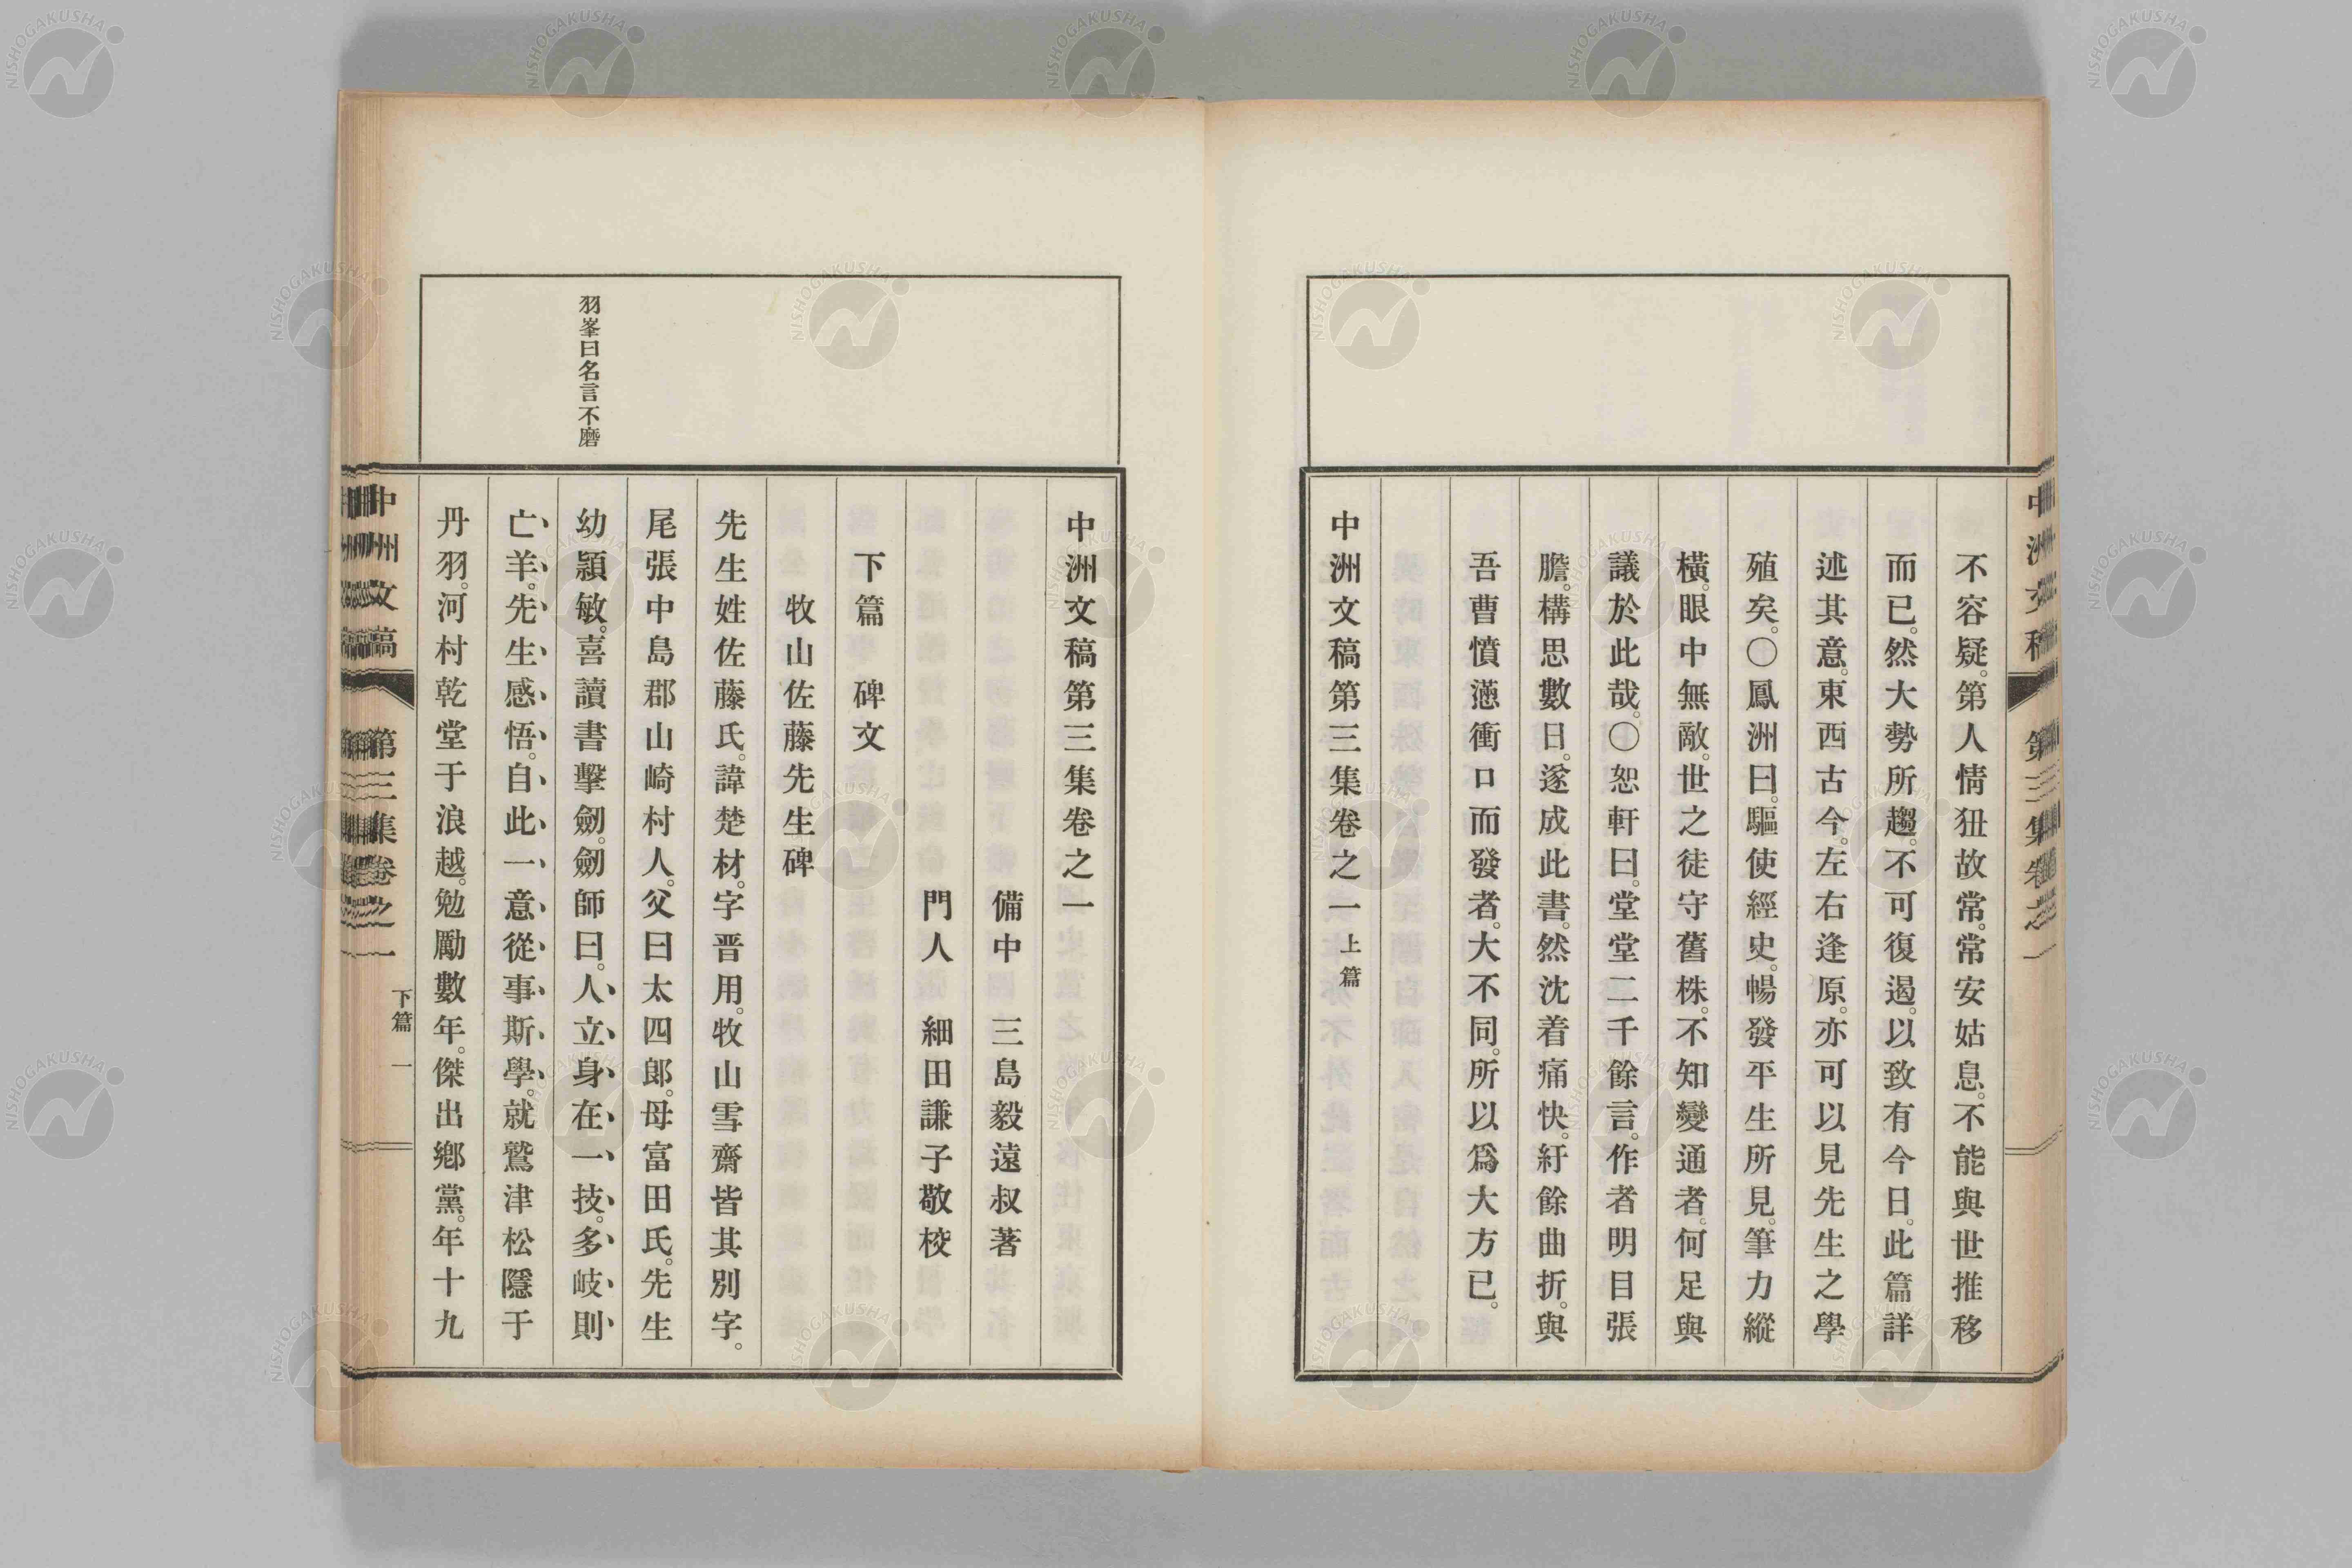 不容疑。第人情狃故常。常安姑息。不能與世推移
而已。然大勢所趨。不可復遏。以致有今日。此篇詳
述其意。東西古今。左右逢原。亦可以見先生之學
殖矣。〇鳳洲曰。驅使經史。暢發平生所見。筆力縱
橫。眼中無敵。世之徒守舊株。不知變通者。何足與
議於此哉。〇恕軒曰。堂堂二千餘言。作者明目張
膽。構思數日。遂成此書。然沈着痛快。紆餘曲折。與
吾曹憤懣衝口而發者。大不同。所以爲大方已。
中洲文稿第三集卷之一 上篇
中洲文稿第三集卷之一
備中 三島毅遠叔著
門人 細田謙子敬校
下篇 碑文
牧山佐藤先生碑
先生姓佐藤氏。諱楚材。字晋用。牧山雪齋皆其別字。
尾張中島郡山崎村人。父曰太四郎。母富田氏。先生
羽峯曰名言不磨
幼穎敏。喜讀書擊劒。劒師曰。人立身在一技。多岐則
亡羊。先生感悟。自此一意從事斯學。就鷲津松隱于
丹羽。河村乾堂于浪越。勉勵數年。傑出鄕黨。年十九
中洲文稿 第三集卷之一 下篇 一
NISHOGAKUSHA